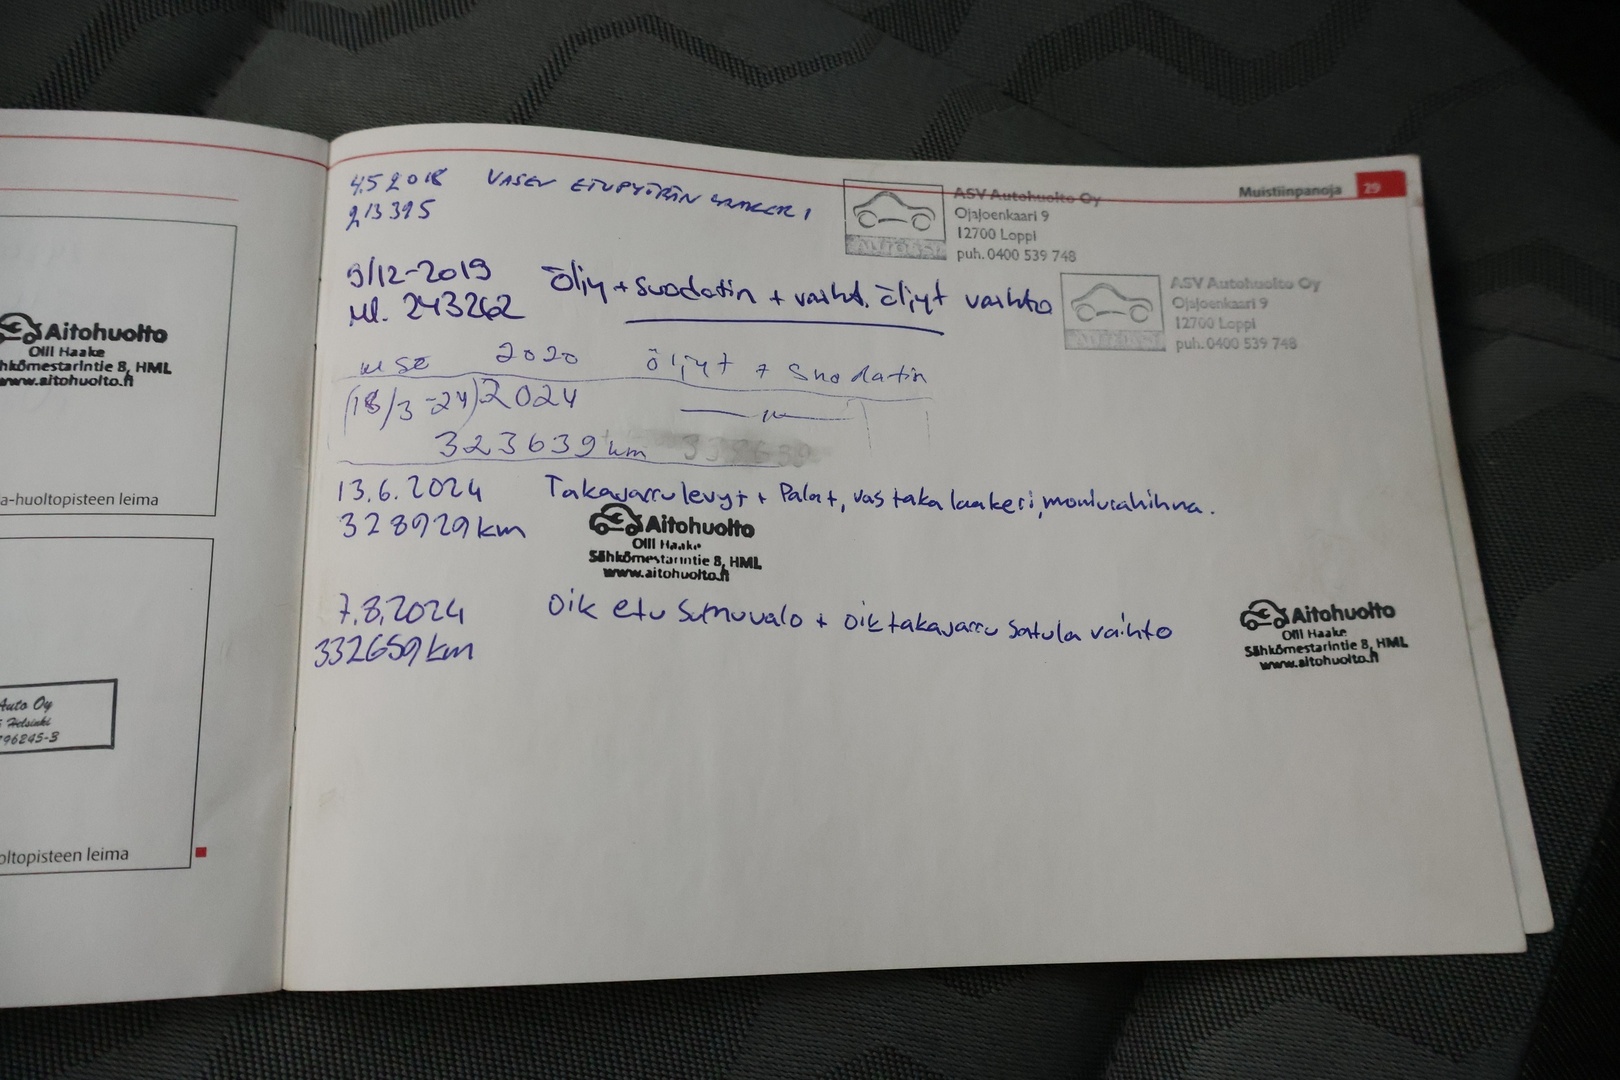 Aitohuolto
Olli Haake
hkömestarintie 8, HML
www.aitohuolto.fi
a-huoltopisteen leima
Auto Oy
Helsinki
796245-3
oltopisteen leima
Muistiinpanoja 29
4.5 2018 VASEN ETUPYÖRÄN
213395
ASV Autohuolto Oy
Ojajoenkaari 9
12700 Loppi
puh. 0400 539 748
9/12-2019 Öljy + suodatin + vaiht. öljyt vaihto
Ml. 243262
ASV Autohuolto Oy
Ojajoenkaari 9
12700 Loppi
puh. 0400 539 748
2020 öljyt + suodatin
(18/3-24) 2024 —"—
323639 km
13.6.2024 Takajarrulevyt + Palat, vas taka laakeri, moniurahihna.
328929 km
Aitohuolto
Olli Haake
Sähkömestarintie 8, HML
www.aitohuolto.fi
7.8.2024 Oik etu sumuvalo + oik takajarru satula vaihto
332659 km
Aitohuolto
Olli Haake
Sähkömestarintie 8, HML
www.aitohuolto.fi